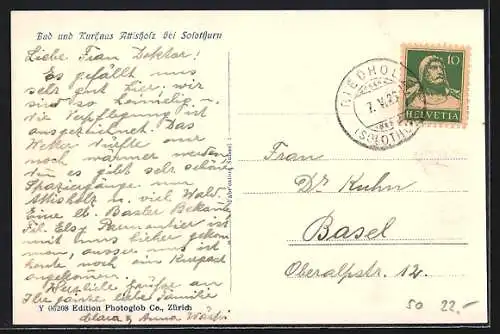 Bad und Kurhaus Attisholz bei Solothurn
Liebe Frau Doktor!
Es gefällt uns
sehr gut hier, wir
sind so heimelig u.
die Verpflegung ist
ausgezeichnet. Das
Wetter dürfte nur
noch wärmer werden
Nun es gibt sehr schöne
Spaziergänge um
Attisholz u. viel Wald.
Eine Basler Bekannte
Frl. Els
mit uns hieher gekom-
men, ausser uns ist
heute noch ein Kurgast
angekommen.
Herzliche Grüsse an
Ihre ganze liebe Familie
Clara & Anna
Y 06208 Edition Photoglob Co., Zürich
NIEDHOLZ
7. V. 25
(SOLOTH.)
10
HELVETIA
Frau
Dr Kuhn
Basel
Oberalpstr. 12.
50 22.-